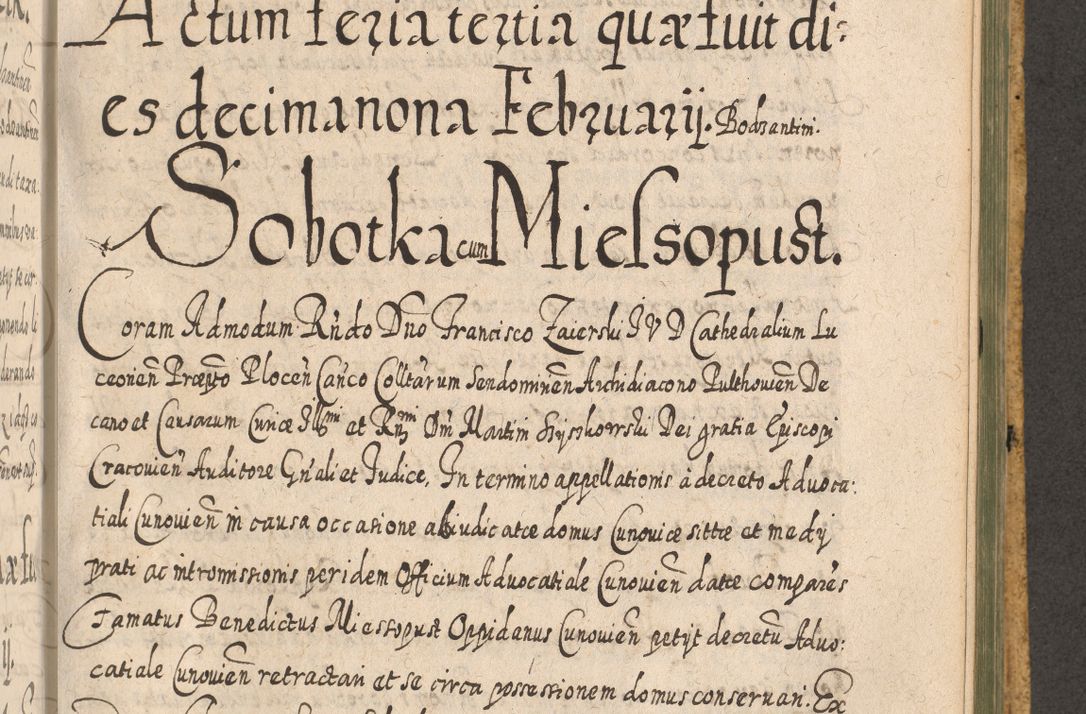 Actum feria tertia quæ fuit di-
es decimanona Februarij. Bodzantin.
Sobotka cum Mielsopust.
Coram Admodum Rndo Dno Francisco Zaierski I V D Cathedralium Lu
ceorien Præpto Plocen Canco Colltarum Sendomirien Archidiacono Pulthovien De
cano et Causarum Curiæ Illmi et Rmi Dni Martini Szyszkowski Dei gratia Episcopi
Cracovien Auditore Gnali et Judice. In termino appellationis à decreto Advoca:
tiali Cunovien in causa occasione abiudicatæ domus Cunoviæ sitæ et medij
prati ac intromissionis per idem Officium Advocatiale Cunovien datæ comparens
Famatus Benedictus Miessopust Oppidanus Cunovien petijt decretu Advo:
catiale Cunovien retractari et se circa possessionem domus conservari. Ex